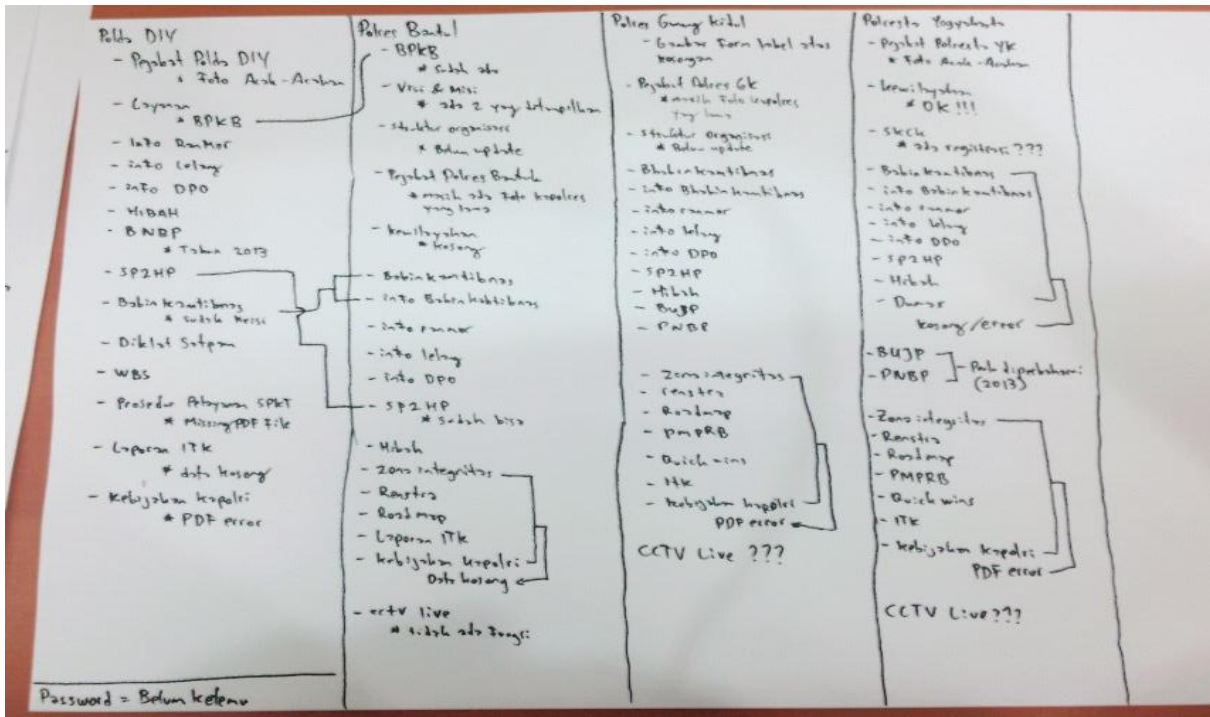 Polda DIY
- Pejabat Polda DIY
* Foto Acak-Acakan
- Layanan
* BPKB
- Info RanMor
- info Lelang
- info DPO
- HIBAH
- BNBP
* Tahun 2013
- SP2HP
- Babinkamtibmas
* sudah Keisi
- Diklat Satpam
- WBS
- Prosedur Pelayanan SPKT
* Missing PDF File
- Laporan ITK
* data kosong
- Kebijakan Kapolri
* PDF error
Password = Belum Ketemu
Polres Bantul
- BPKB
* Sudah ada
- Visi & Misi
* ada 2 yang ditampilkan
- Struktur organisasi
* Belum update
- Pejabat Polres Bantul
* masih ada Foto kapolres
yang lama
- kewilayahan
* kosong
- Babinkamtibmas
- info Babinkabtibmas
- info ranmor
- info lelang
- info DPO
- SP2HP
* Sudah bisa
- Hibah
- Zona integritas
- Renstra
- Roadmap
- Laporan ITK
- kebijakan kapolri
Data kosong
- cctv live
* tidak ada Fungsi
Polres Gunung Kidul
- Gambar Form label atas
kosongan
- Pejabat Polres GK
* masih Foto kapolres
yang lama
- Struktur Organisasi
* Belum update
- Bhabinkamtibmas
- info Bhabinkamtibmas
- info ranmor
- info lelang
- info DPO
- SP2HP
- Hibah
- BUJP
- PNBP
- Zona integritas
- renstra
- Roadmap
- pmpRB
- Quick wins
- ITK
- kebijakan kapolri
PDF error
CCTV Live ???
Polresta Yogyakarta
- Pejabat Polresta YK
* Foto Acak-Acakan
- kewilayahan
* OK!!!
- SKCK
* ada registrasi ???
- Babinkamtibmas
- info Babinkamtibmas
- info ranmor
- info lelang
- info DPO
- SP2HP
- Hibah
- Dumas
kosong/error
- BUJP
- PNBP
- Perlu diperbaharui
(2013)
- Zona integritas
- Renstra
- Roadmap
- PMPRB
- Quick wins
- ITK
- kebijakan kapolri
PDF error
CCTV Live???